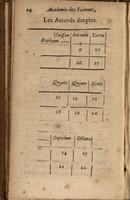 24 Academie des Sciences,
Les Accords simples.
Unisson Seconde Tierce
Repliques
9 10
16 17
Quarte Quinte Sixte
11 12 13
18 19 20
Septième Octave
14 15
21 22